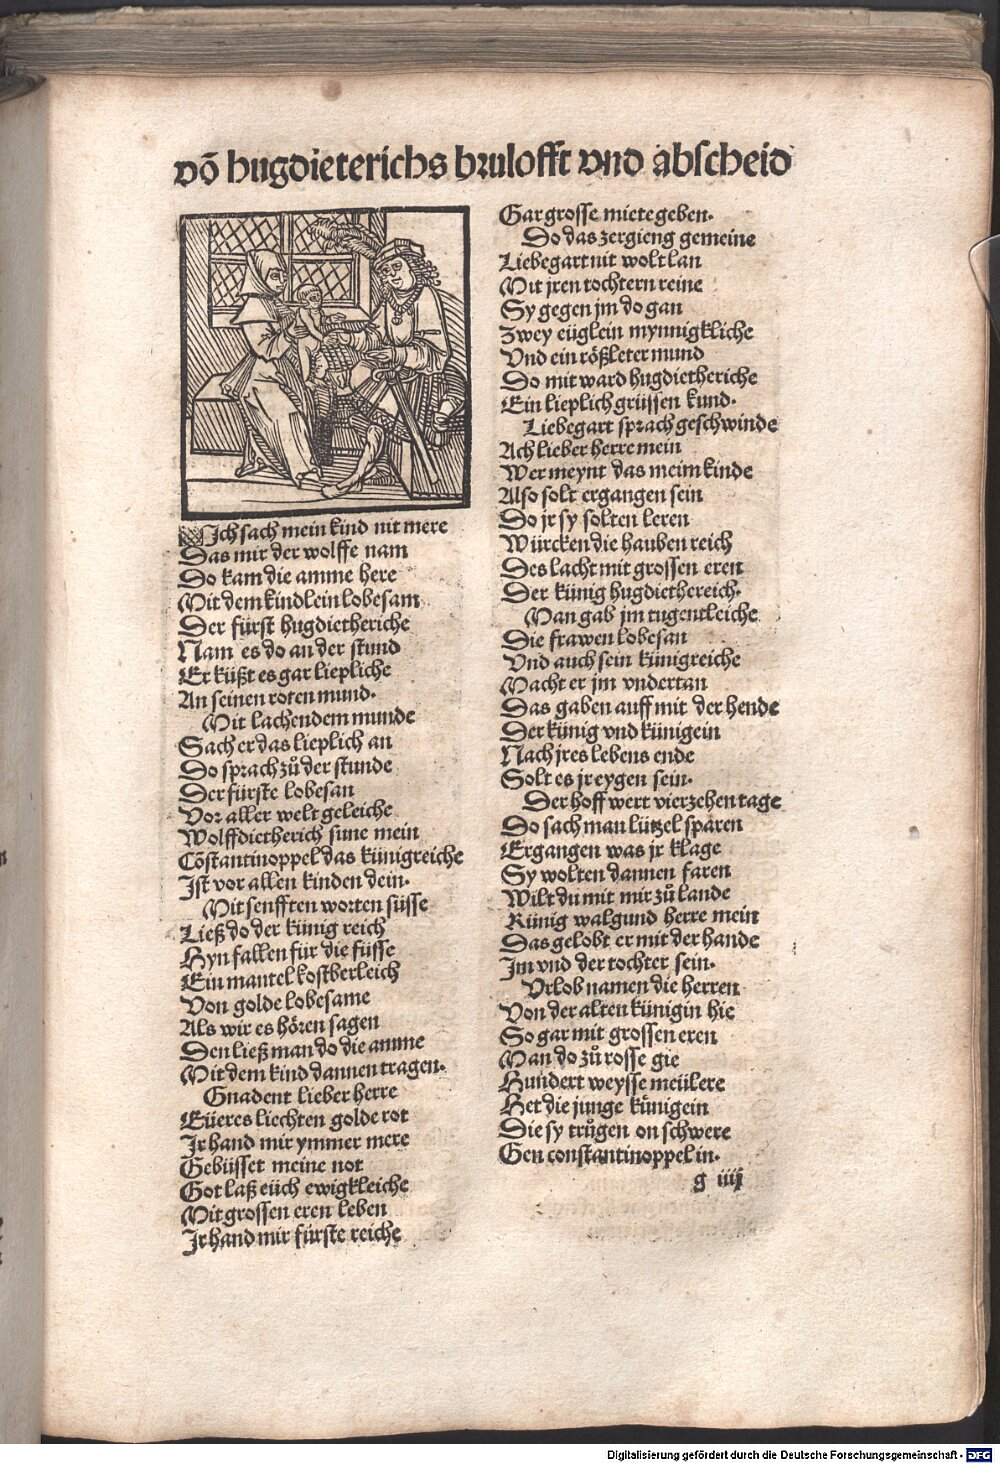 võ hugdieterichs brulofft vnd abscheid
Ich sach mein kind nit mere
Das mir der wolffe nam
Do kam die amme here
Mit dem kindlein lobesam
Der fürst hugdietheriche
Nam es do an der stund
Er küßt es gar liepliche
An seinen roten mund.
Mit lachendem munde
Sach er das lieplich an
Do sprach zů der stunde
Der fürste lobesan
Vor aller welt geleiche
Wolffdietherich sune mein
Cõstantinoppel das künigreiche
Ist vor allen kinden dein.
Mit senfften worten süsse
Ließ do der künig reich
Hyn fallen für die füsse
Ein mantel kostberleich
Von golde lobesame
Als wir es hören sagen
Den ließ man do die amme
Mit dem kind dannen tragen.
Gnadent lieber herre
Eüeres liechten golde rot
Ir hand mir ymmer mere
Gebüsset meine not
Got laß eüch ewigkleiche
Mit grossen eren leben
Ir hand mir fürste reiche
Gar grosse miete geben.
Do das zergieng gemeine
Liebegart nit wolt lan
Mit jren tochtern reine
Sy gegen jm do gan
Zwey eüglein mynnigkliche
Vnd ein rößleter mund
Do mit ward hugdietheriche
Ein lieplich grüssen kund.
Liebegart sprach geschwinde
Ach lieber herre mein
Wer meynt das meim kinde
Also solt ergangen sein
Do jr sy solten leren
Würcken die hauben reich
Des lacht mit grossen eren
Der künig hugdiethereich.
Man gab jm tugentleiche
Die frawen lobesan
Vnd auch sein künigreiche
Macht er jm vndertan
Das gaben auff mit der hende
Der künig vnd künigein
Nach jres lebens ende
Solt es jr eygen sein.
Der hoff wert vierzehen tage
Do sach man lützel sparen
Ergangen was jr klage
Sy wolten dannen faren
Wilt du mit mir zů lande
Künig walgund herre mein
Das gelobt er mit der hande
Im vnd der tochter sein.
Vrlob namen die herren
Von der alten künigin hie
So gar mit grossen eren
Man do zů rosse gie
Hundert weysse meülere
Het die junge künigein
Die sy trůgen on schwere
Gen constantinoppel in.
g iiij
Digitalisierung gefördert durch die Deutsche Forschungsgemeinschaft - DFG